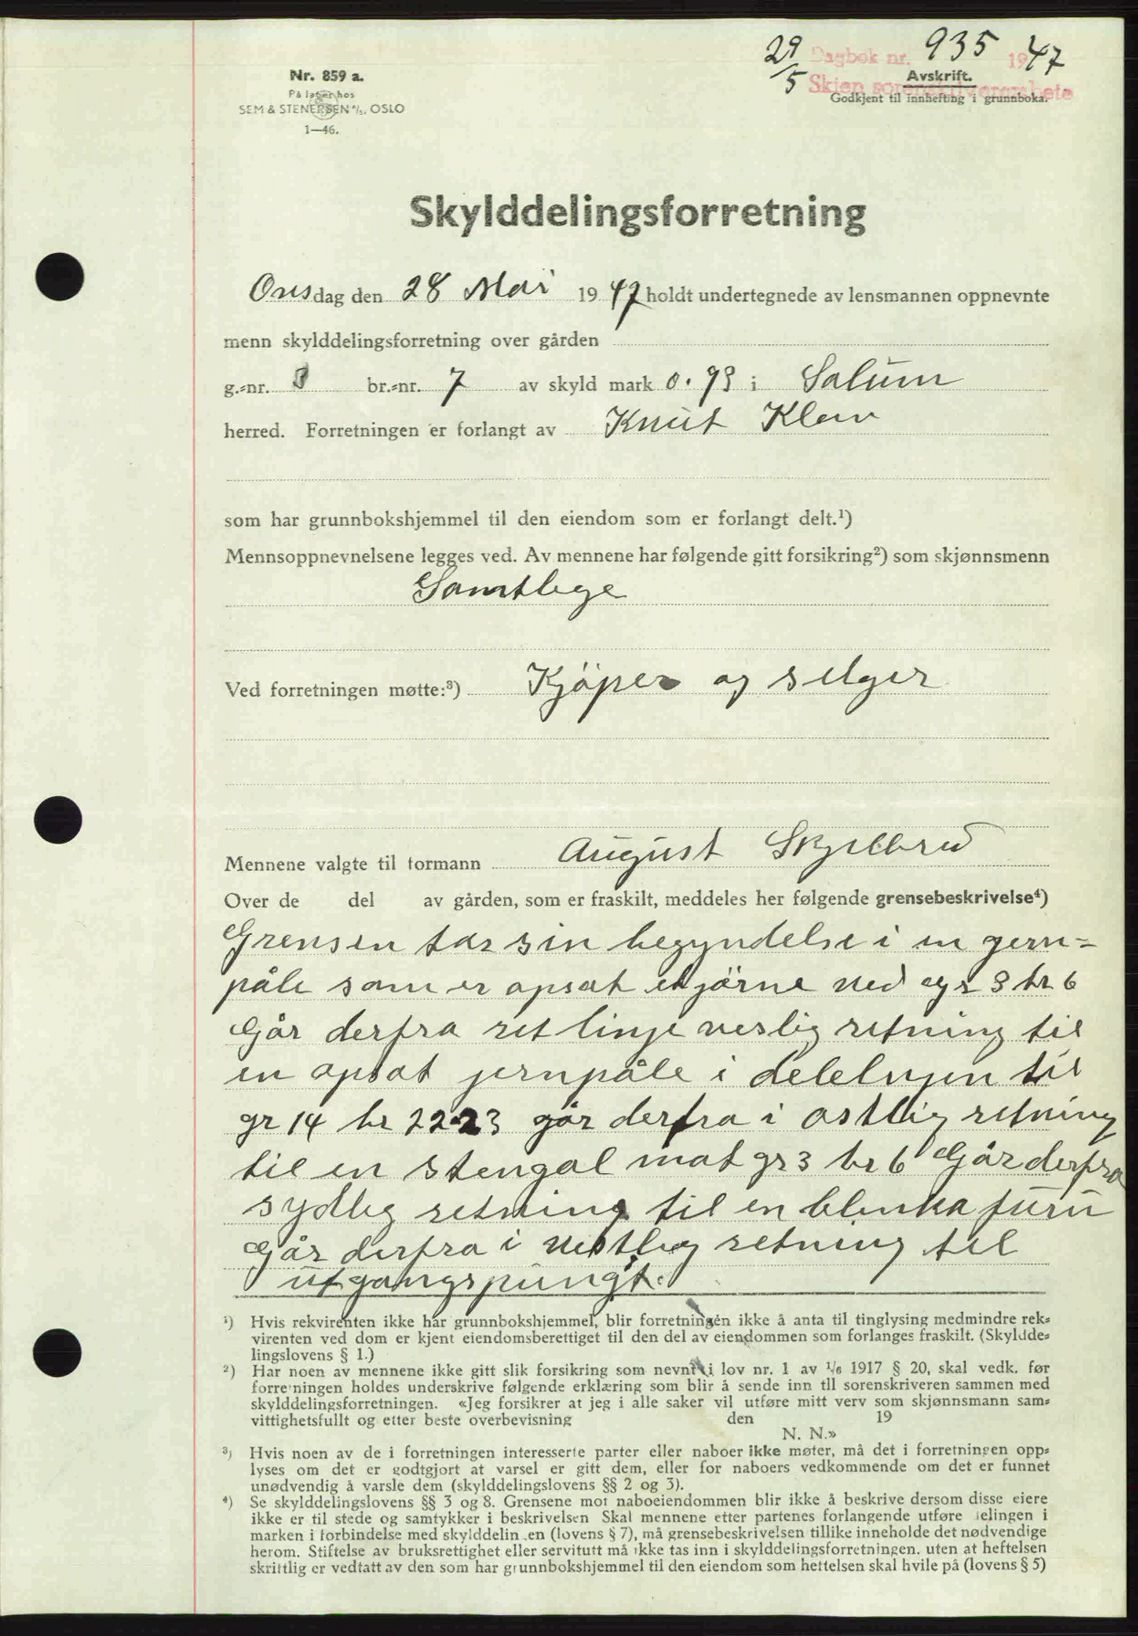 29/5 Dagbok nr. 935 1947
Skien sorenskriverembete
Nr. 859 a.
På lager hos
SEM & STENERSEN A/S. OSLO
1—46.
Avskrift.
Godkjent til innhefting i grunnboka.
Skylddelingsforretning
Onsdag den 28 Mai 1947 holdt undertegnede av lensmannen oppnevnte
menn skylddelingsforretning over gården
g.-nr. 3 br.-nr. 7 av skyld mark 0.93 i Solum
herred. Forretningen er forlangt av Knut Klev
som har grunnbokshjemmel til den eiendom som er forlangt delt.¹)
Mennsoppnevnelsene legges ved. Av mennene har følgende gitt forsikring²) som skjønnsmenn
Samtlege
Ved forretningen møtte:³) Kjöper og selger
Mennene valgte til formann August Skjelbred
Over de del av gården, som er fraskilt, meddeles her følgende grensebeskrivelse⁴)
Grensen tar sin begyndelse i en jern=
påle som er opsat i hjörne ved gr 3 br 6
Går derfra ret linje veslig retning til
en opsat jernpåle i delelinjen til
gr 14 br 22-23 går derfra i ostlig retning
til en stengal mot gr 3 br 6 Går derfra
sydlig retning til en blinka furu
Går derfra i vestlig retning til
utgangspungt.
¹) Hvis rekvirenten ikke har grunnbokshjemmel, blir forretningen ikke å anta til tinglysing medmindre rek-
virenten ved dom er kjent eiendomsberettiget til den del av eiendommen som forlanges fraskilt. (Skyldde-
lingslovens § 1.)
²) Har noen av mennene ikke gitt slik forsikring som nevnt i lov nr. 1 av 1/6 1917 § 20, skal vedk. før
forretningen holdes underskrive følgende erklæring som blir å sende inn til sorenskriveren sammen med
skylddelingsforretningen. «Jeg forsikrer at jeg i alle saker vil utføre mitt verv som skjønnsmann sam-
vittighetsfullt og etter beste overbevisning den 19
N. N.»
³) Hvis noen av de i forretningen interesserte parter eller naboer ikke møter, må det i forretningen opp-
lyses om det er godtgjort at varsel er gitt dem, eller for naboers vedkommende om det er funnet
unødvendig å varsle dem (skylddelingslovens §§ 2 og 3).
⁴) Se skylddelingslovens §§ 3 og 8. Grensene mot naboeiendommen blir ikke å beskrive dersom disse eiere
ikke er til stede og samtykker i beskrivelsen Skal mennene etter partenes forlangende utføre delingen i
marken i forbindelse med skylddelingen (lovens § 7), må grensebeskrivelsen tillike inneholde det nødvendige
herom. Stiftelse av bruksrettighet eller servitutt må ikke tas inn i skylddelingsforretningen, uten at heftelsen
skriftlig er vedtatt av den som har grunnbokshjemmel til den eiendom som heftelsen skal hvile på (lovens § 5)